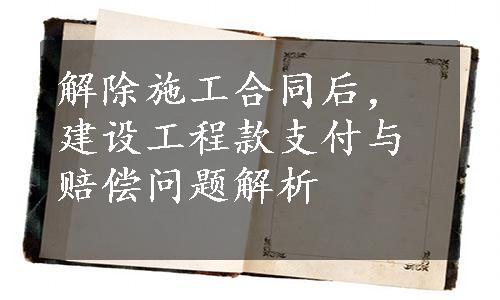 解除施工合同后，
建设工程款支付与
赔偿问题解析